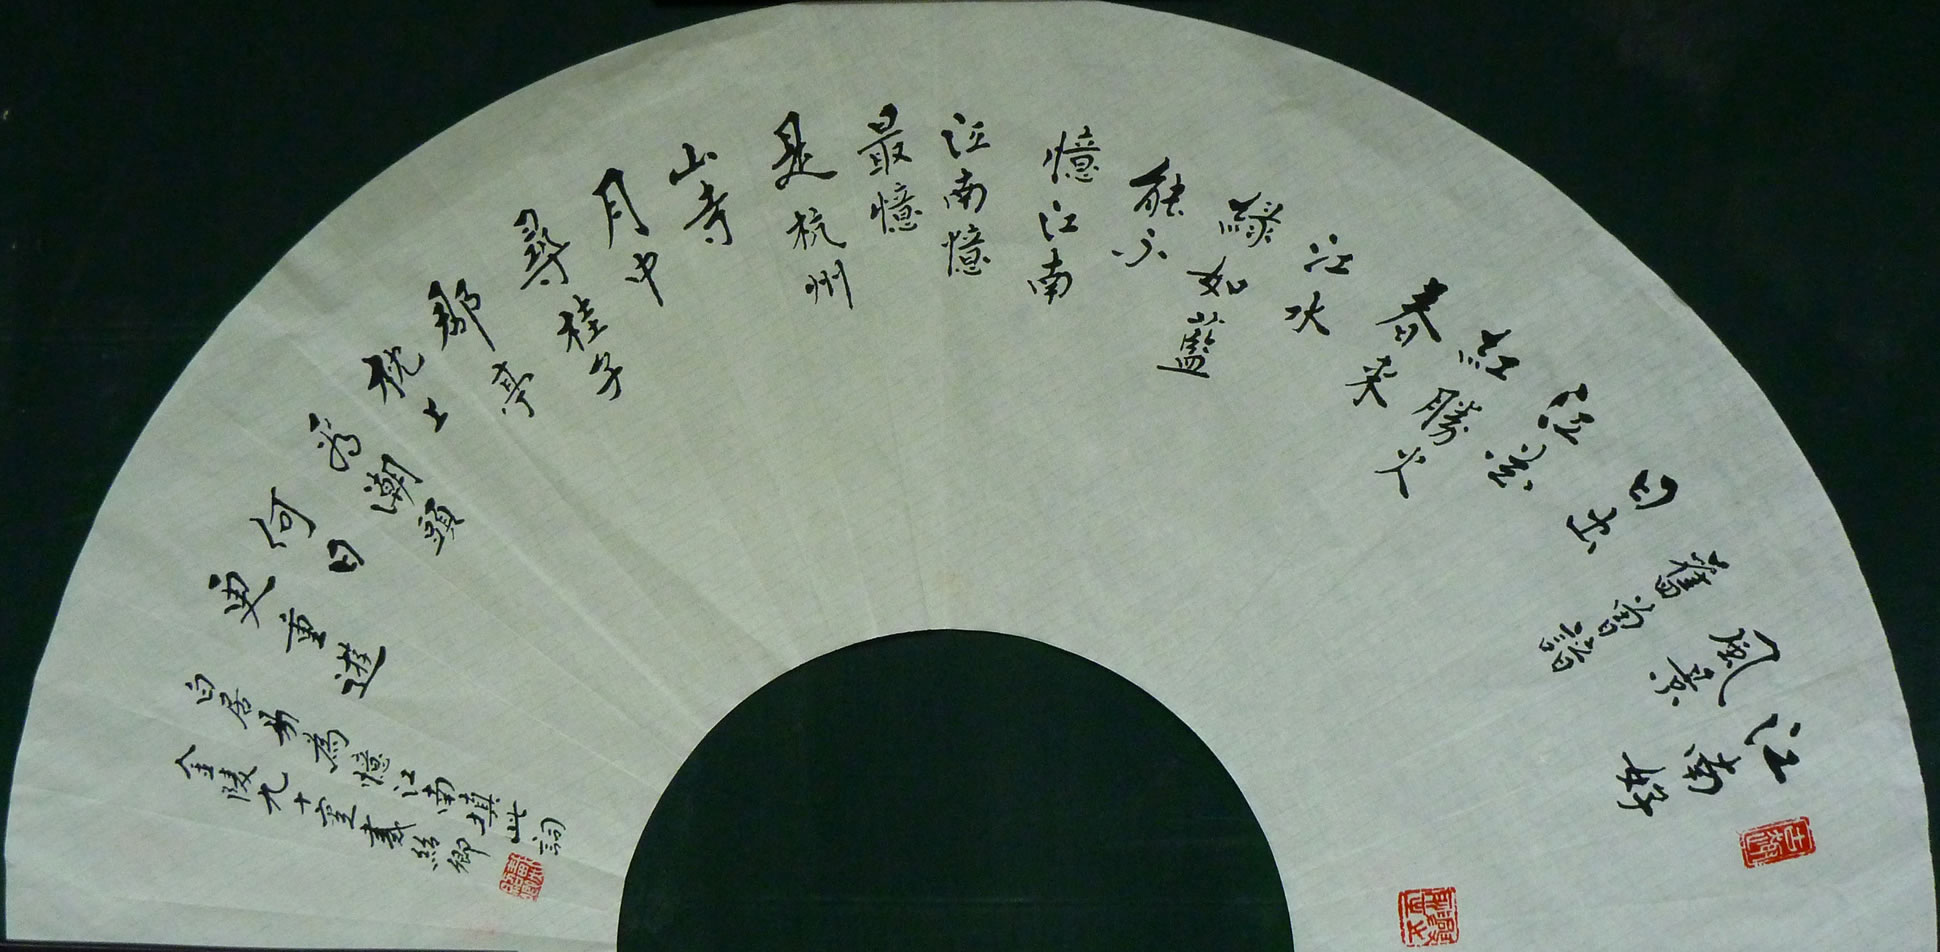 江南好
風景
舊曾諳
日出
江花
紅勝火
春来
江水
緑如藍
能不
憶江南
江南憶
最憶
是杭州
山寺
月中
尋桂子
郡亭
枕上
看潮頭
何日
更重遊
白居易為憶江南填此詞
金陵九十叟戴絲卿